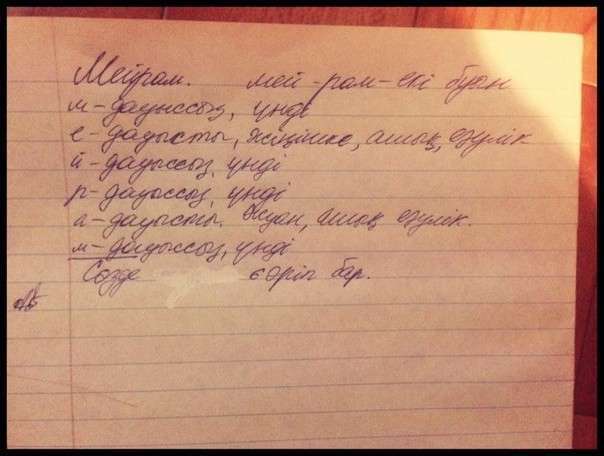 Мейрам. мей-рам-екі буын
м-дауыссыз, үнді
е-дауысты, жіңішке, ашық, езулік
й-дауыссыз, үнді
р-дауыссыз, үнді
а-дауысты. Жуан, ашық езулік.
м-дауыссыз, үнді
Сөзде 6 әріп бар.